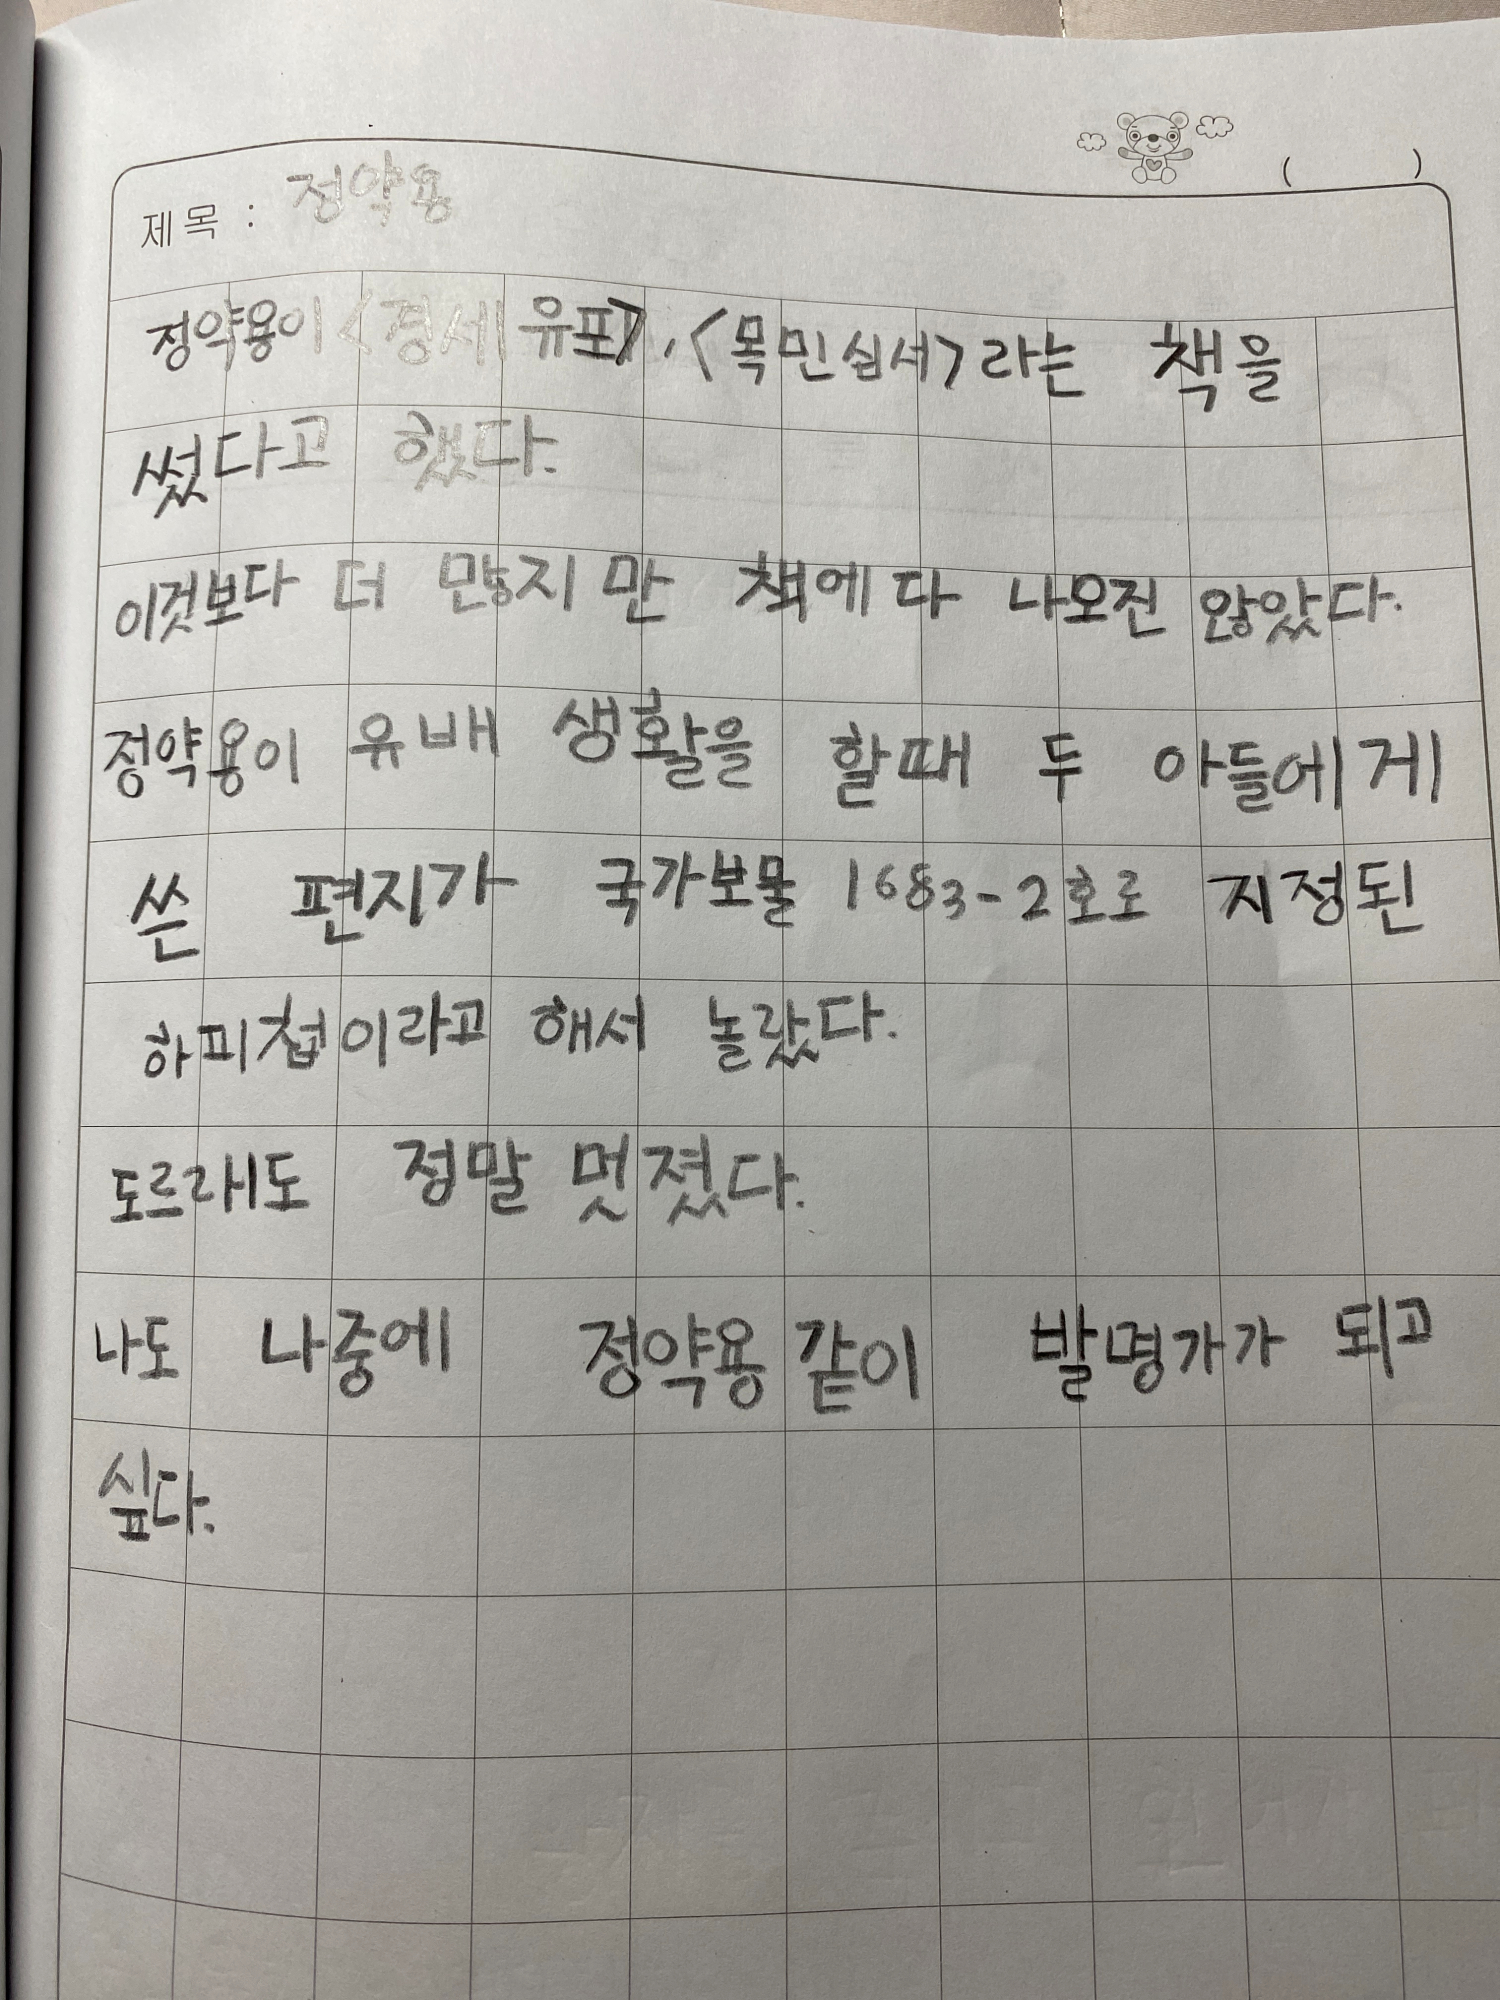 제목 : 정약용
정약용이 <경세유표>, <목민십서>라는 책을
썼다고 했다.
이것보다 더 많지만 책에 다 나오진 않았다.
정약용이 유배 생활을 할때 두 아들에게
쓴 편지가 국가보물 1683-2호로 지정된
하피첩이라고 해서 놀랐다.
도르래도 정말 멋졌다.
나도 나중에 정약용 같이 발명가가 되고
싶다.